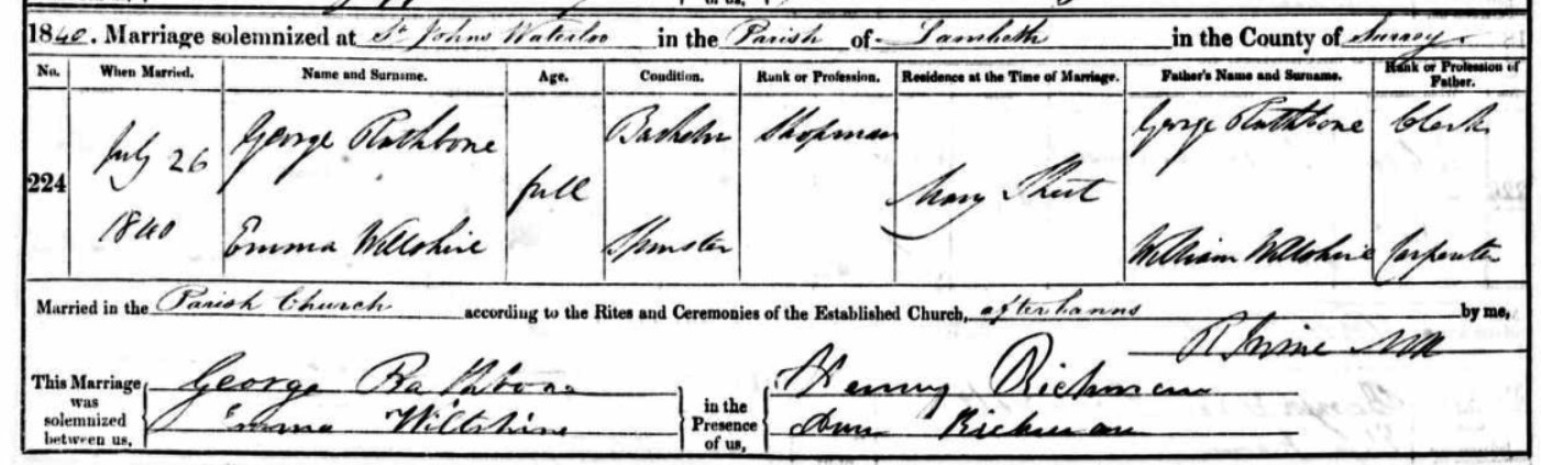 1840. Marriage solemnized at St Johns Waterloo in the Parish of Lambeth in the County of Surrey
No. When Married. Name and Surname. Age. Condition. Rank or Profession. Residence at the Time of Marriage. Father's Name and Surname. Rank or Profession of Father.
224
July 26 George Rathbone full Bachelor Shopman Mary Street George Rathbone Clerk
1840 Emma Wiltshire Spinster William Wiltshire Carpenter
Married in the Parish Church according to the Rites and Ceremonies of the Established Church, after banns by me,
R Irvine
This Marriage was solemnized between us,
George Rathbone
Emma Wiltshire
in the Presence of us,
Henny Richman
Ann Richman